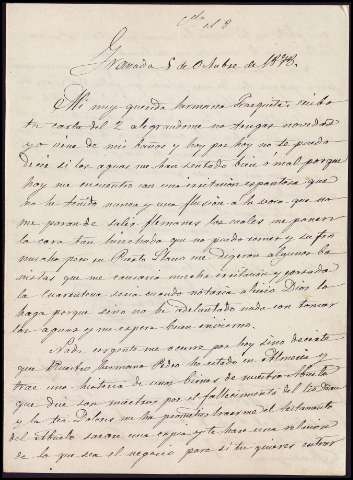 Cda
el 8
Granada 5 de Octubre de 1878.
Mi muy querida hermana Frasquita: recibo
tu carta del 2 alegrandome no tengas novedad
yo vine de mis baños y hoy por hoy no te puedo
decir si las aguas me han sentado bien o mal porque
hoy me encuentro con una irritacion espantosa que
no he tenido nunca y una fluxion a la boca que no
me paran de salir flemones los cuales me ponen
la cara tan hinchada que no puedo comer y sufro
mucho pero su Puerta Llano me digeron algunos ba
ñistas que me causaria mucha irritacion y pasada
la cuarentena seria cuando notaria alivio Dios lo
haga porque sino no he adelantado nada con tomar
las aguas y me espera buen invierno.
Nada urgente me ocurre por hoy sino decirte
que nuestro hermano Pedro ha estado en Almeria y
trae una historia de unos bienes de nuestro Abuelo
que dice son nuestros por el fallecimiento del tio Juan
y la tia Dolores me ha prometido traerme el testamento
del Abuelo sacare una copia y te hare una relacion
de lo que sea el negocio para si tu quieres entrar